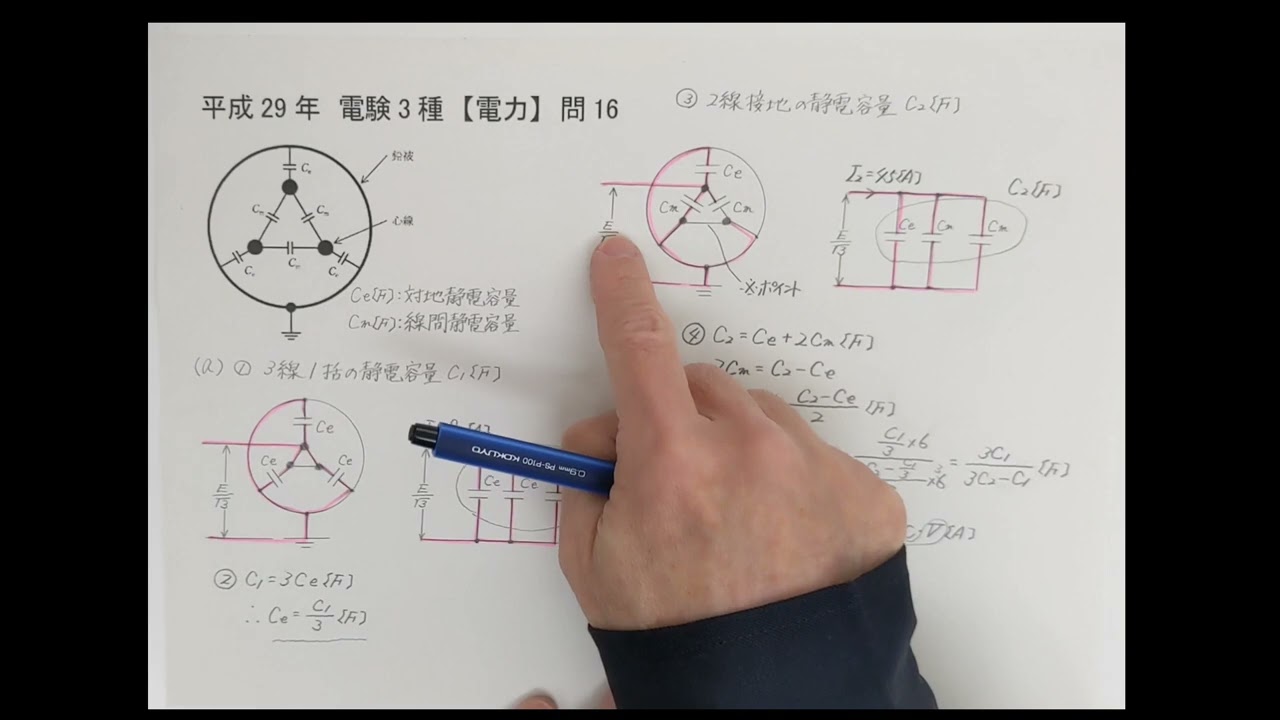 平成29年 電験3種【電力】問16
鉛被
心線
Ce
Cm
Cm
Cm
Ce
Ce
Ce[F]:対地静電容量
Cm[F]:線間静電容量
(a) ① 3線1括の静電容量 C₁[F]
Ce
Ce
Ce
E/√3
E/√3
Ce
Ce
② C₁=3Ce[F]
∴ Ce=C₁/3[F]
③ 2線接地の静電容量 C₂[F]
Ce
Cm
Cm
※ポイント
I₂=45[A]
C₂[F]
E/√3
Ce
Cm
Cm
④ C₂=Ce+2Cm[F]
2Cm=C₂-Ce
C₂-Ce/2[F]
=3C₁/3C₂-C₁[F]
[A]
0.9mm PS-P100 KOKUYO